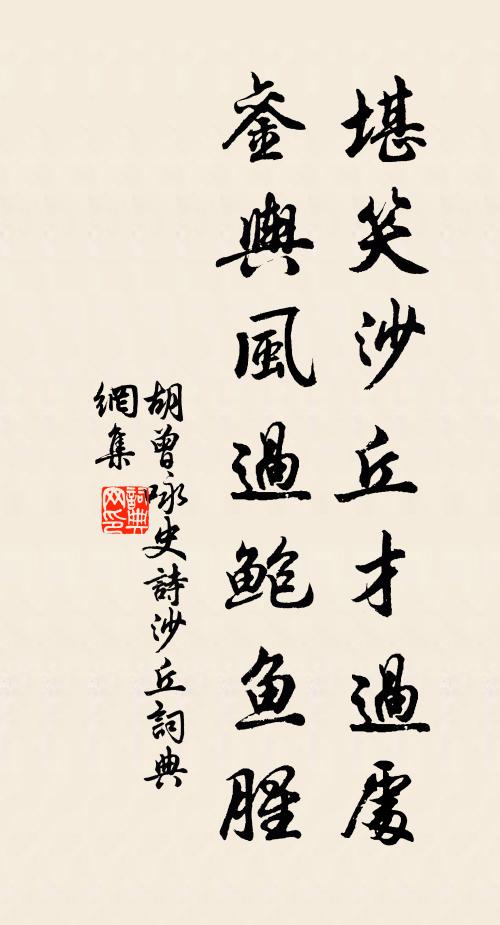 堪笑沙丘才過處
銮輿風過鮑魚腥
胡曾咏史詩沙丘詞典
網集
詞典网印